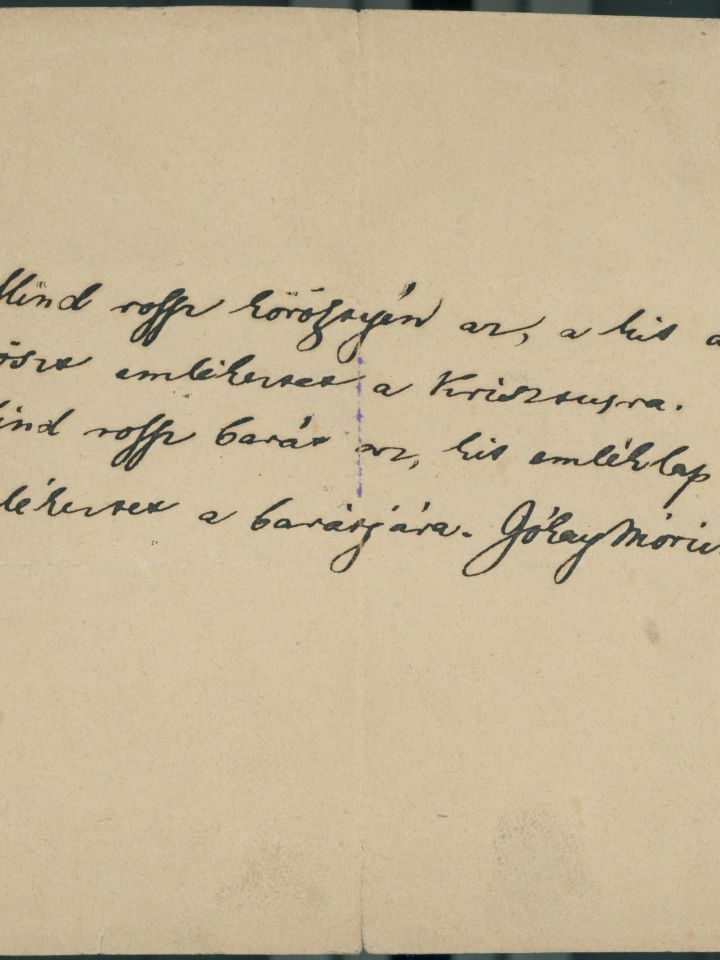 Mind rossz körösztyén az, a kit a
öszt emlékeztet a Krisztusra.
ind rossz barát az, kit emléklap
lékeztet a barátjára. Jókay Móric